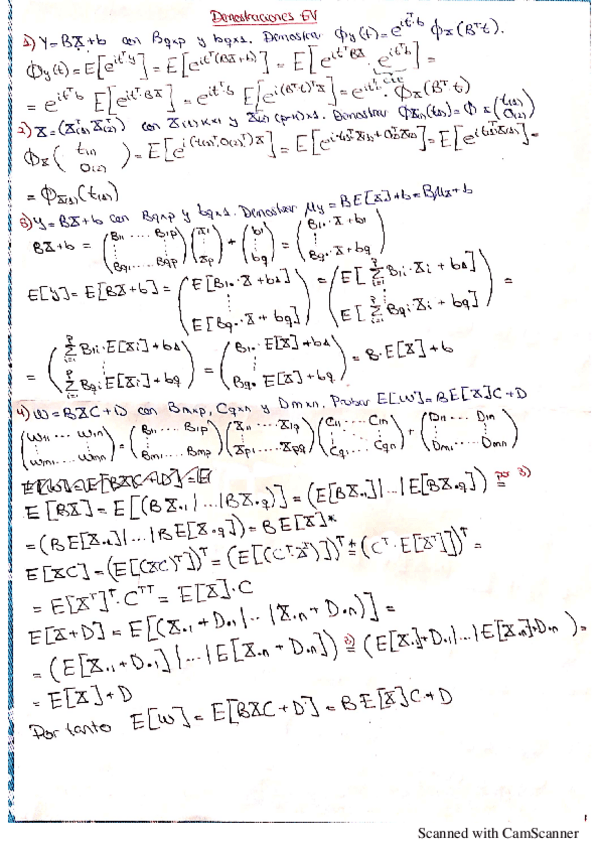 Demostraciones EV
1) Y=BX+b con Bqxp y bqx1. Demostrar Φy(t)=e^{it^T b} Φx(B^T t).
Φy(t)=E[e^{it^T y}]=E[e^{it^T(BX+b)}]=E[e^{it^T BX} · e^{it^T b}]=
=e^{it^T b} E[e^{it^T BX}]=e^{it^T b} E[e^{i(B^T t)^T X}]=e^{it^T b} · Φx(B^T t)
2) X=(X(1),X(2)) con X(1) kx1 y X(2) (p-k)x1. Demostrar ΦX(1)(t(1))=Φx(t(1) 0(2))
Φx(t(1) 0(2))=E[e^{i(t(1)^T,0(2)^T)X}]=E[e^{i·t(1)^T X(1)+0(2)^T X(2)}]=E[e^{i t(1)^T X(1)}]=
=ΦX(1)(t(1))
3) Y=BX+b con Bqxp y bqx1. Demostrar μy=BE[X]+b=Bμx+b
BX+b = (B11 ... B1p ⋮ Bq1 ... Bqp)(X1 ⋮ Xp)+(b1 ⋮ bq)=(B1· · X+b1 ⋮ Bq· · X+bq)
E[y]=E[BX+b]=(E[B1· · X+b1] ⋮ E[Bq· · X+bq])=(E[∑_{i=1}^p B1i·Xi+b1] ⋮ E[∑_{i=1}^p Bqi Xi+bq])=
=(∑_{i=1}^p B1i·E[Xi]+b1 ⋮ ∑_{i=1}^p Bqi E[Xi]+bq)=(B1· · E[X]+b1 ⋮ Bq· E[X]+bq)=B·E[X]+b
4) W=BXC+D con Bmxp, Cqxn y Dmxn. Probar E[W]=BE[X]C+D
(W11 ... W1n ⋮ Wm1 ... Wmn)=(B11 ... B1p ⋮ Bm1 ... Bmp)(X11 ... X1q ⋮ Xp1 ... Xpq)(C11 ... C1n ⋮ Cq1 ... Cqn)+(D11 ... D1n ⋮ Dm1 ... Dmn)
E[W]=E[BXC+D]=E
E[BX]=E[(BX·1|...|BX·q)]=(E[BX·1]|...|E[BX·q]) = por 3)
=(BE[X·1]|...|BE[X·q])=BE[X]*
E[XC]=(E[(XC)^T])^T=(E[(C^T·X^T)])^T *= (C^T·E[X^T])^T=
=E[X^T]^T·C^{TT}=E[X]·C
E[X+D]=E[(X·1+D·1|...|X·n+D·n)]=
=(E[X·1+D·1]|...|E[X·n+D·n]) 3)= (E[X·1]+D·1|...|E[X·n]+D·n)=
=E[X]+D
Por tanto E[W]=E[BXC+D]=BE[X]C+D
Scanned with CamScanner